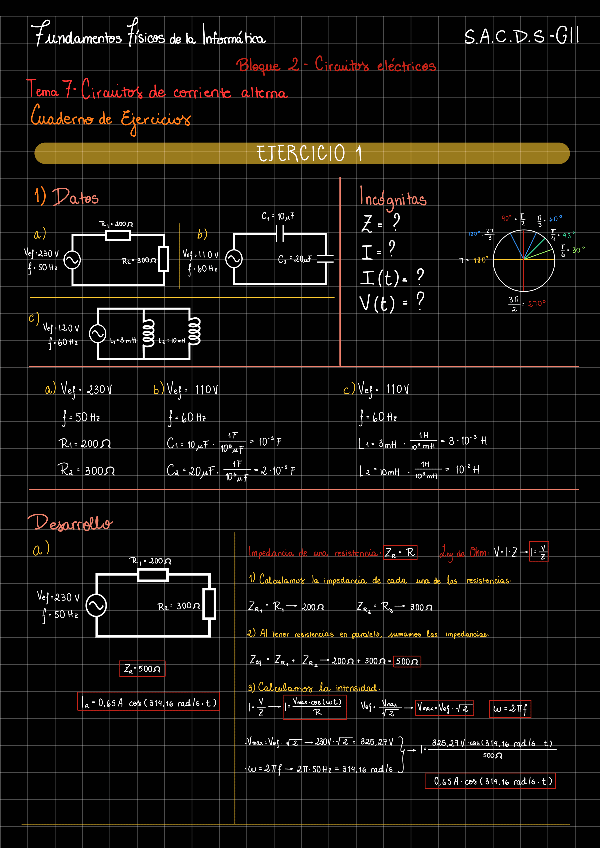 Fundamentos Físicos de la Informática
S.A.C.D.S - GII
Bloque 2 - Circuitos eléctricos
Tema 7 - Circuitos de corriente alterna
Cuaderno de Ejercicios
EJERCICIO 1
1) Datos
Incógnitas
a)
R₁ = 200Ω
Vef = 230 V
f = 50 Hz
R₂ = 300Ω
b)
C₁ = 10 μF
Vef = 110 V
f = 60 Hz
C₂ = 20 μF
c)
Vef = 120 V
f = 60 Hz
L₁ = 3 mH
L₂ = 10 mH
Z = ?
I = ?
I(t) = ?
V(t) = ?
π/2
π/3 = 60°
π/4 = 45°
π/6 = 30°
π = 180°
3π/2 = 270°
a) Vef = 230 V
f = 50 Hz
R₁ = 200Ω
R₂ = 300Ω
b) Vef = 110V
f = 60 Hz
C₁ = 10 μF · 1F/10⁶ μF = 10⁻⁵ F
C₂ = 20 μF · 1F/10⁶ μF = 2·10⁻⁵ F
c) Vef = 110V
f = 60 Hz
L₁ = 3mH · 1H/10³ mH = 3·10⁻³ H
L₂ = 10mH · 1H/10³ mH = 10⁻² H
Desarrollo
a)
R₁ = 200Ω
Vef = 230 V
f = 50 Hz
R₂ = 300Ω
Z₂ = 500Ω
I₂ = 0,65 A cos (314,16 rad/s · t)
Impedancia de una resistencia: Z_R = R
Ley de Ohm: V = I·Z → I = V/Z
1) Calculamos la impedancia de cada una de las resistencias.
Z_R₁ = R₁ → 200Ω
Z_R₂ = R₂ → 300Ω
2) Al tener resistencias en paralelo, sumamos las impedancias.
Z_eq = Z_R₁ + Z_R₂ → 200Ω + 300Ω = 500Ω
3) Calculamos la intensidad.
I = V/Z → I = Vmax · cos(ωt)/R
Vef = Vmax/√2 → Vmax = Vef · √2
ω = 2πf
· Vmax = Vef · √2 → 230V · √2 = 325,27 V
· ω = 2πf → 2π · 50 Hz = 314,16 rad/s
→ I = 325,27 V · cos(314,16 rad/s · t)/500Ω
0,65 A · cos (314,16 rad/s · t)